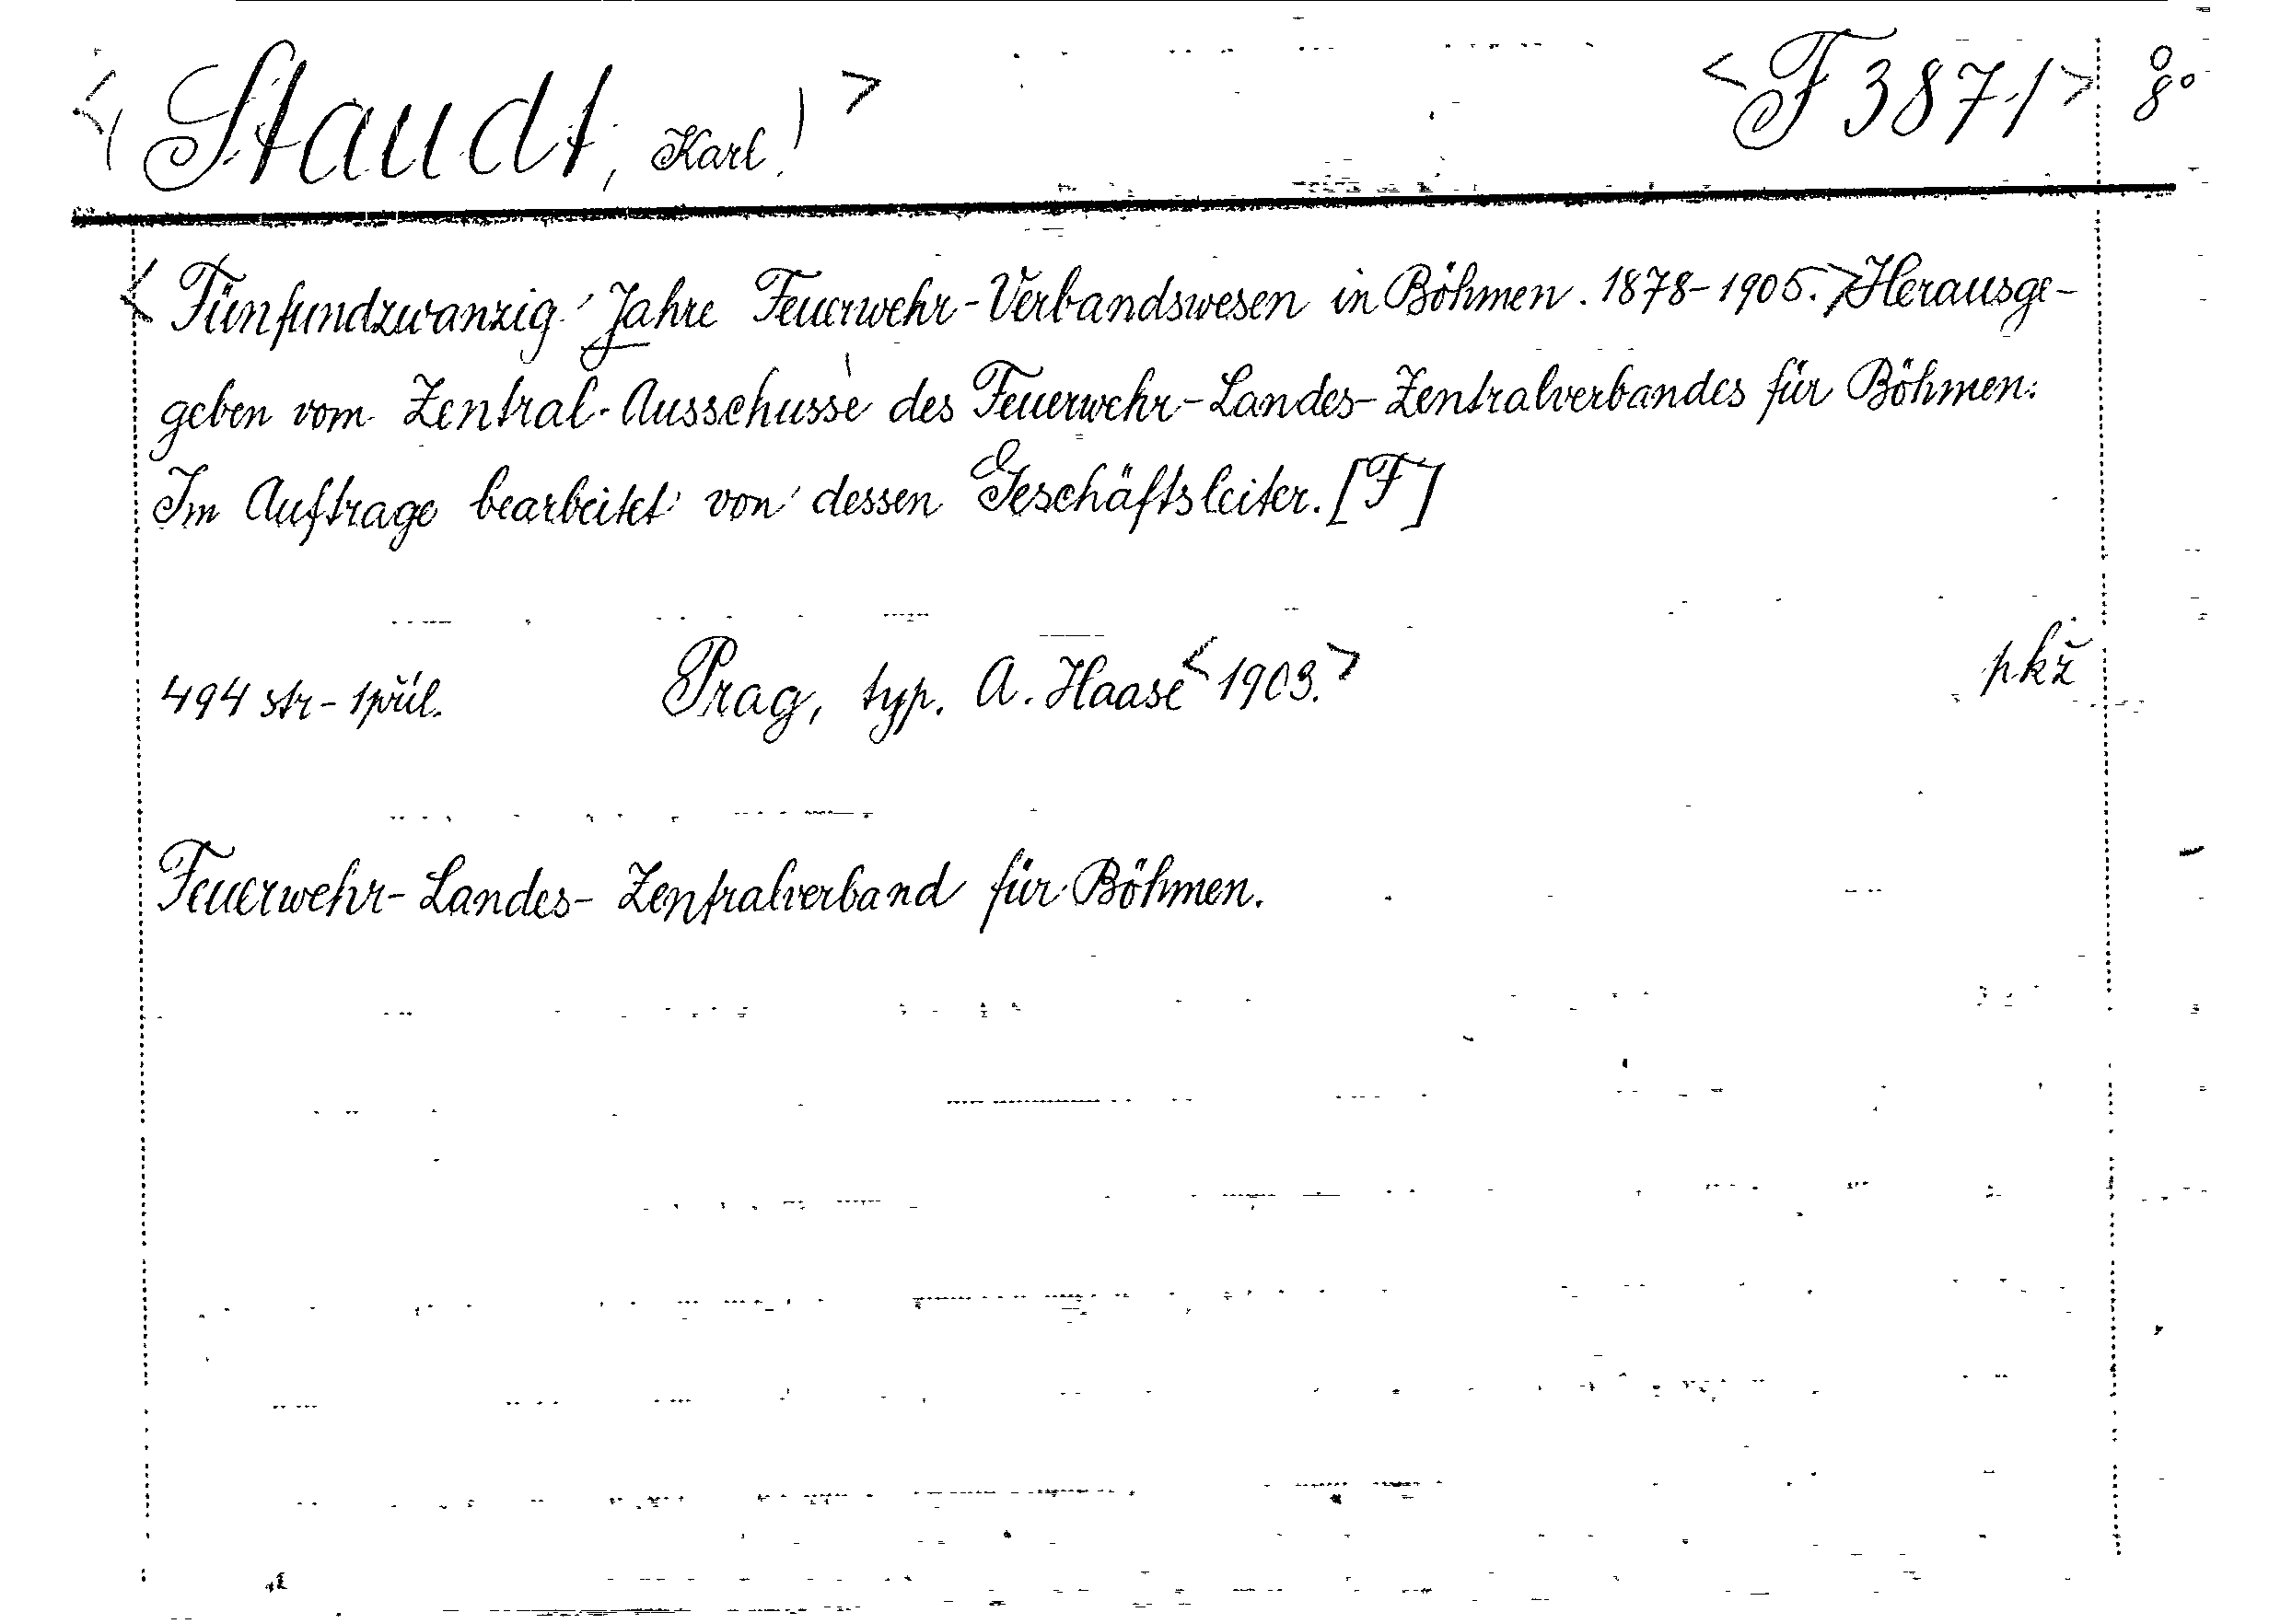 <(Staudt, Karl.)> <F 3871> 8°
<Fünfundzwanzig Jahre Feuerwehr-Verbandswesen in Böhmen. 1878-1905.> Herausge-
geben vom Zentral-Ausschusse des Feuerwehr-Landes-Zentralverbandes für Böhmen.
Im Auftrage bearbeitet von dessen Geschäftsleiter. [F]
494 str - 1 příl. Prag, typ. A. Haase <1903.> pkž
Feuerwehr-Landes-Zentralverband für Böhmen.